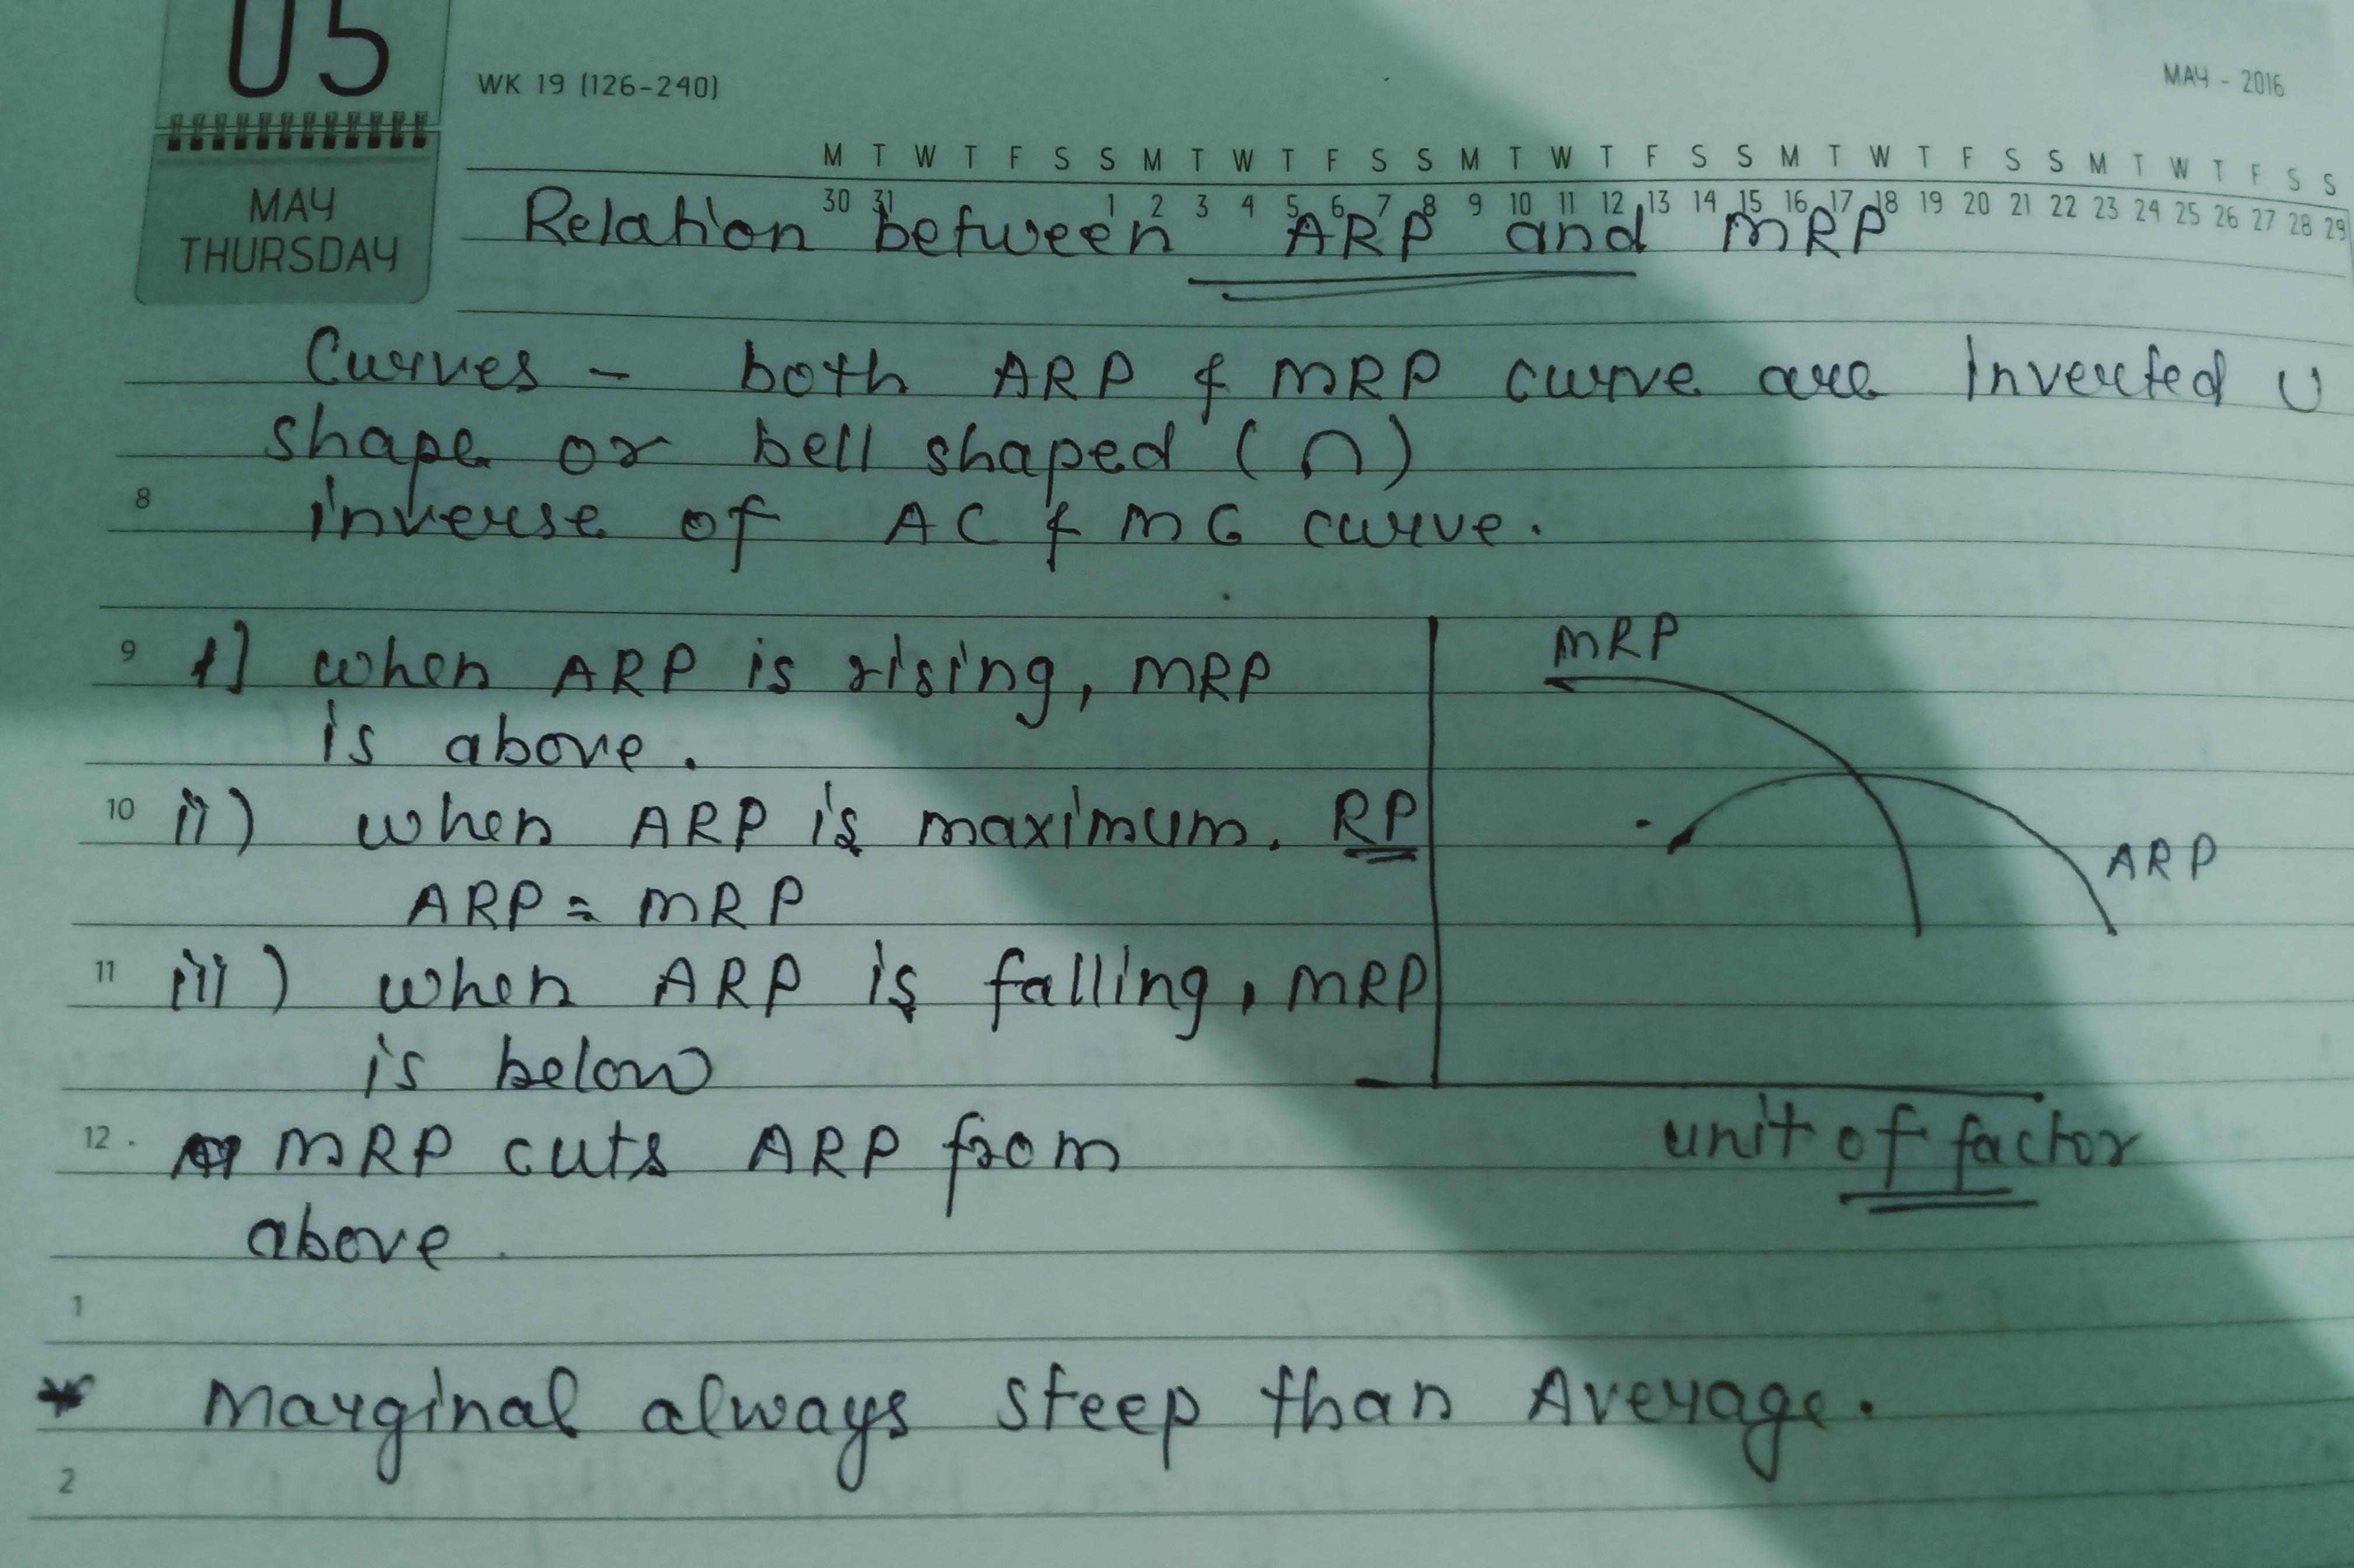 05
WK 19 (126-240)
MAY - 2016
MAY
THURSDAY
M T W T F S S M T W T F S S M T W T F S S M T W T F S S M T W T F S S
30 31 1 2 3 4 5 6 7 8 9 10 11 12 13 14 15 16 17 18 19 20 21 22 23 24 25 26 27 28 29
Relation between ARP and MRP
Curves - both ARP & MRP curve are Inverted U
shape or bell shaped (∩)
8
inverse of AC & MC curve.
9
i] when ARP is rising, MRP
is above.
10
ii) when ARP is maximum. RP
ARP = MRP
11
iii) when ARP is falling, MRP
is below
12
MRP cuts ARP from
above.
MRP
ARP
unit of factor
1
* Marginal always steep than Average.
2